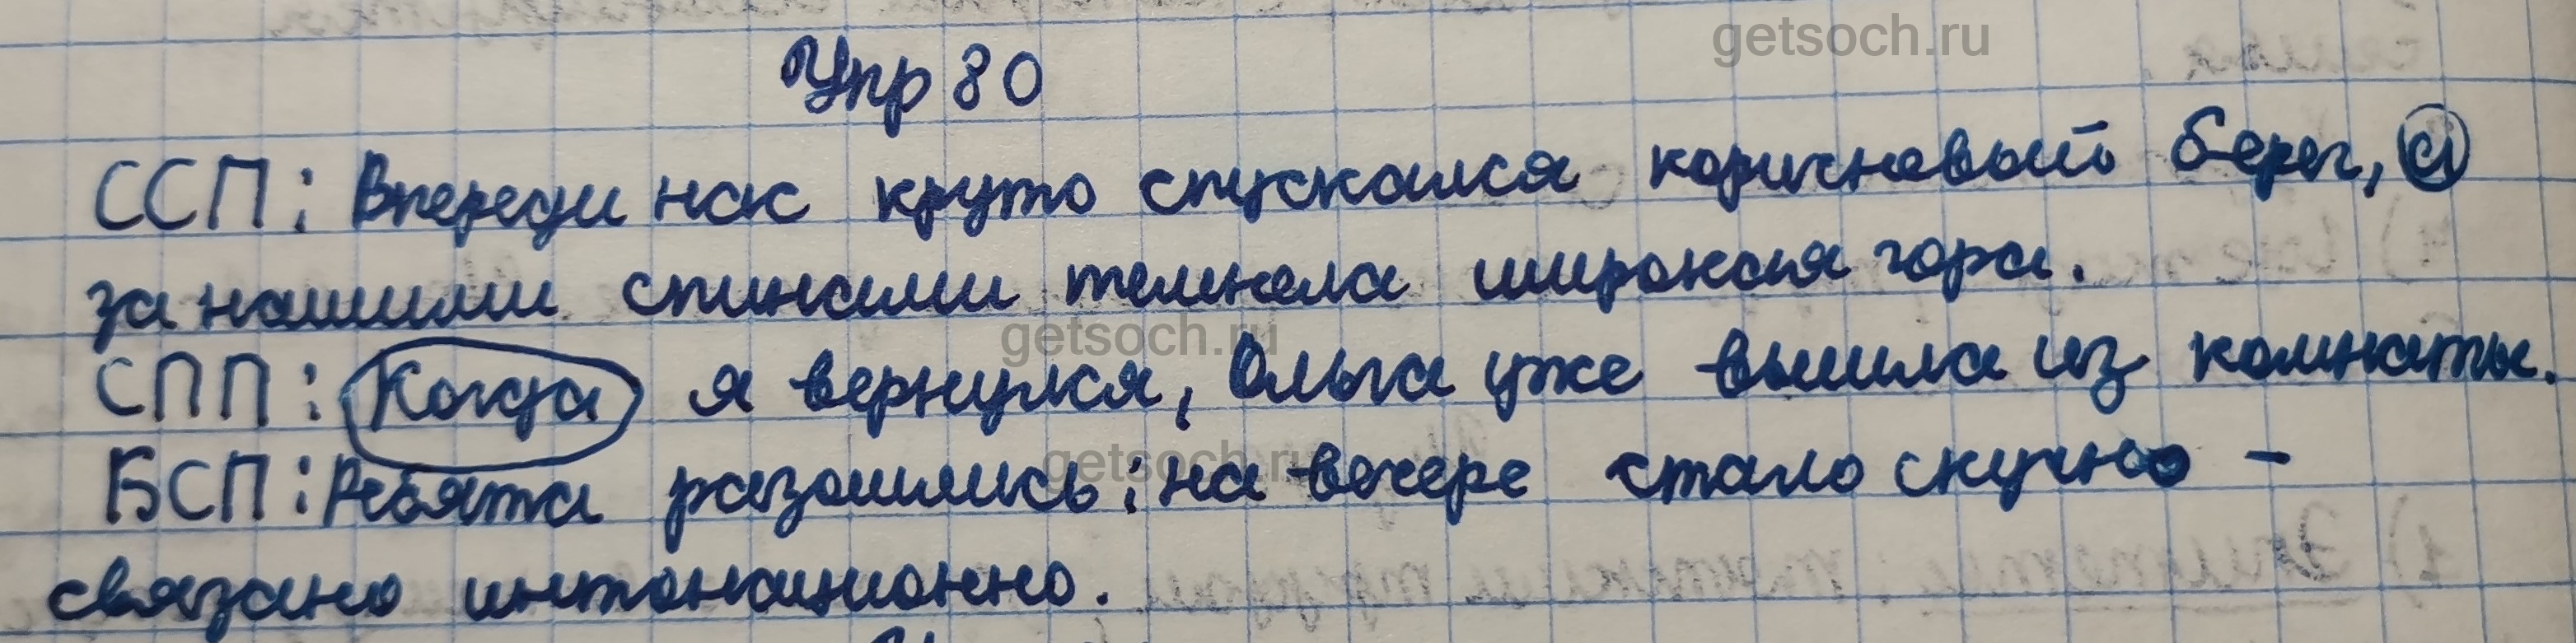 getsoch.ru
Упр 80
ССП: Впереди нас круто спускался коричневый берег, а
за нашими спинами темнела широкая гора.
getsoch.ru
СПП: Когда я вернулся, Ольга уже вышла из комнаты.
getsoch.ru
БСП: Ребята разошлись: на вечере стало скучно -
связано интонационно.